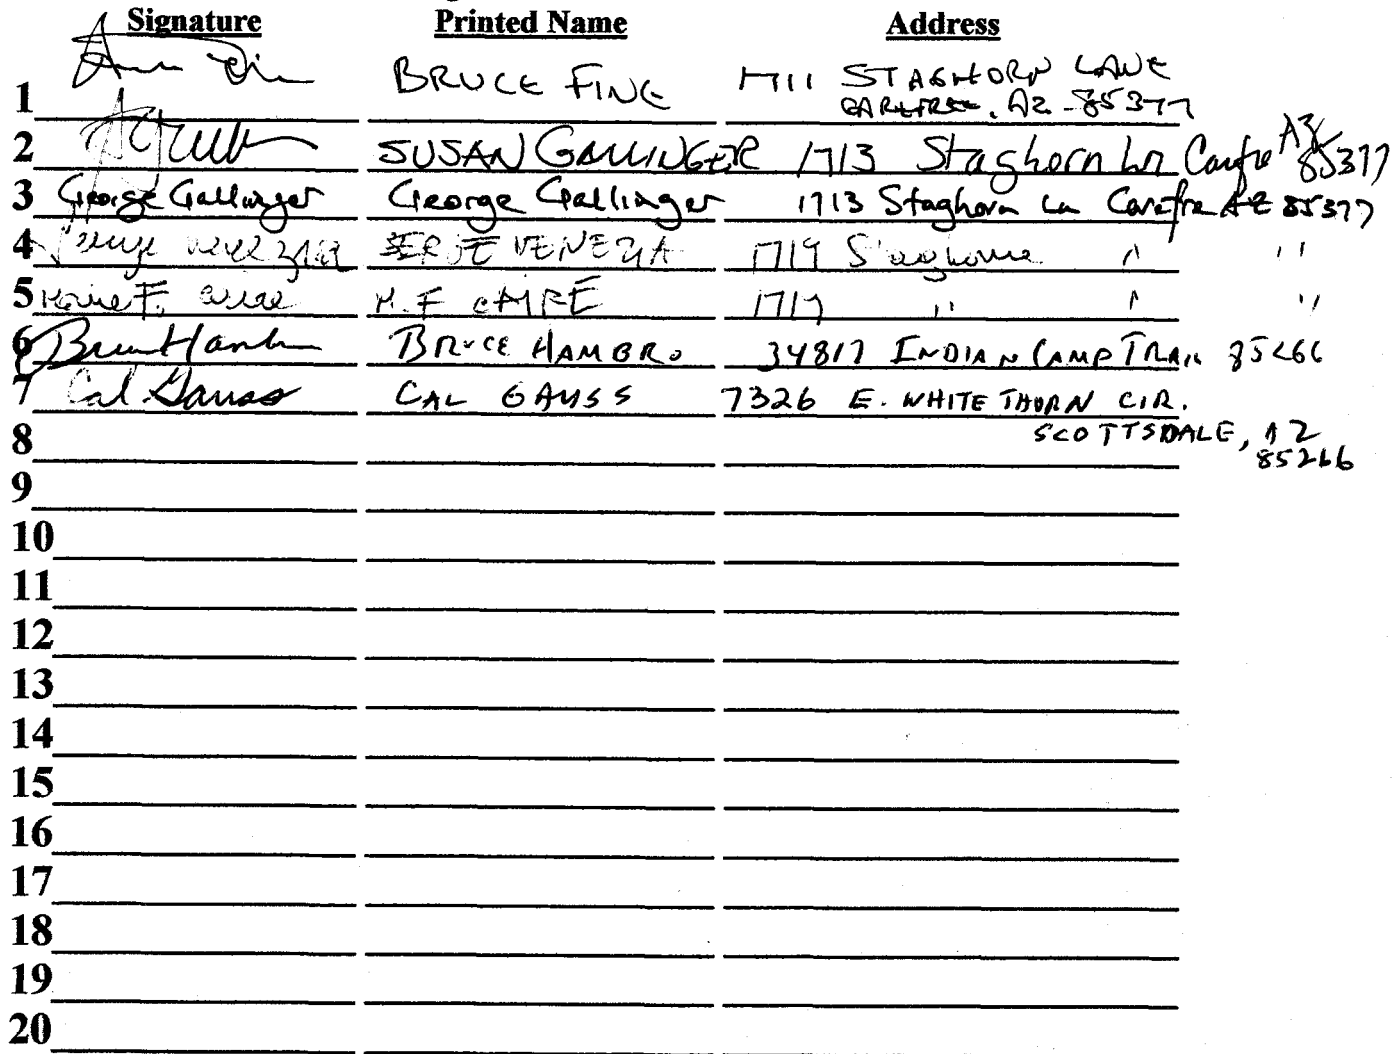 Signature Printed Name Address
1 BRUCE FINE 1711 STAGHORN LANE
CAREFREE, AZ 85377
2 SUSAN GALLINGER 1713 Staghorn Ln Carefre AZ 85377
3 George Gallinger George Gallinger 1713 Staghorn Ln Carefre AZ 85377
4 SERGE VENEZIA 1719 Staghorne " "
5 M.F 1719 " " "
6 BRUCE HAMBRO 34817 INDIAN CAMP TRAIL 85266
7 Cal Gauss CAL GAUSS 7326 E. WHITE THORN CIR.
SCOTTSDALE, AZ
8
85266
9
10
11
12
13
14
15
16
17
18
19
20